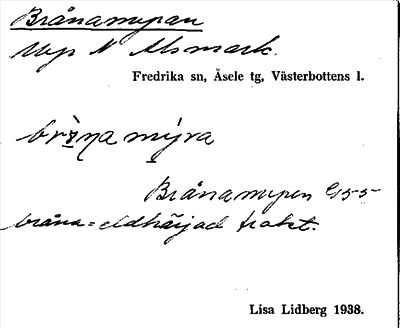 Brånamyran
Myr N Alsmark.
Fredrika sn, Åsele tg, Västerbottens l.
brɔ̀ṇa mýra
Brånamyren G55
bråna = eldhärjad trakt.
Lisa Lidberg 1938.